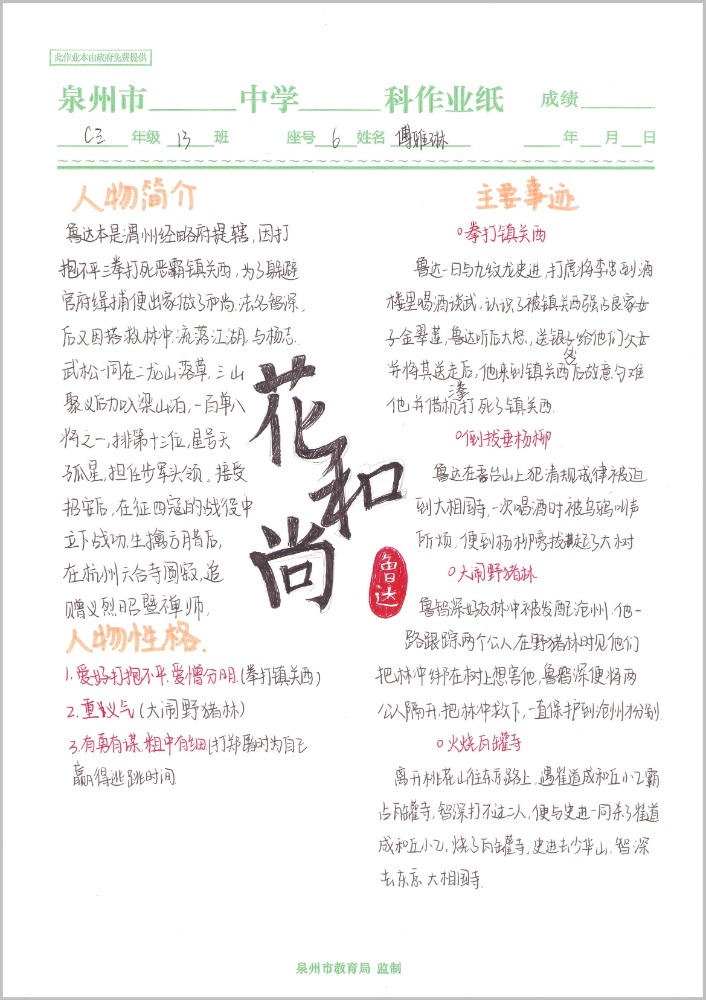 此作业本由政府免费提供
泉州市______中学______科作业纸 成绩______
C三 年级 13 班 座号 6 姓名 傅雅琳 ____年__月__日
人物简介
鲁达本是渭州经略府提辖,因打
抱不平三拳打死恶霸镇关西,为了躲避
官府缉捕便出家做了和尚,法名智深,
后又因搭救林冲,流落江湖,与杨志、
武松一同在二龙山落草,三山
聚义后加入梁山泊,一百单八
将之一,排第十三位,星号天
孤星,担任步军头领。接受
招安后,在征四寇的战役中
立下战功,生擒方腊后,
在杭州六合寺圆寂,追
赠义烈昭暨禅师。
人物性格.
1.爱好打抱不平.爱憎分明.(拳打镇关西)
2.重义气(大闹野猪林)
3.有勇有谋.粗中有细(打郑屠时为自己
赢得逃跳时间
花
和
尚
鲁达
主要事迹
拳打镇关西
鲁达一日与九纹龙史进,打虎将李忠到酒
楼里喝酒谈武,认识了被镇关西强占良家女
子金翠莲,鲁达听后大怒,送银子给他们父女
并将其送走后,他来到镇关西后故意刁难
处
他并借机打死了镇关西.
三拳
倒拔垂杨柳
鲁达在五台山上犯清规戒律被迫
到大相国寺,一次喝酒时被乌鸦叫声
所烦,便到杨柳旁拔起了大树
大闹野猪林
鲁智深好友林冲被发配沧州.他一
路跟踪两个公人在野猪林时见他们
把林冲绑在树上想害他,鲁智深便将两
公人隔开.把林冲救下,一直保护到沧州才分别.
火烧瓦罐寺
离开桃花山往东京路上,遇崔道成和丘小乙霸
占瓦罐寺,智深打不过二人,便与史进一同杀了崔道
成和丘小乙,烧了瓦罐寺,史进去少华山,智深
去东京大相国寺.
泉州市教育局 监制